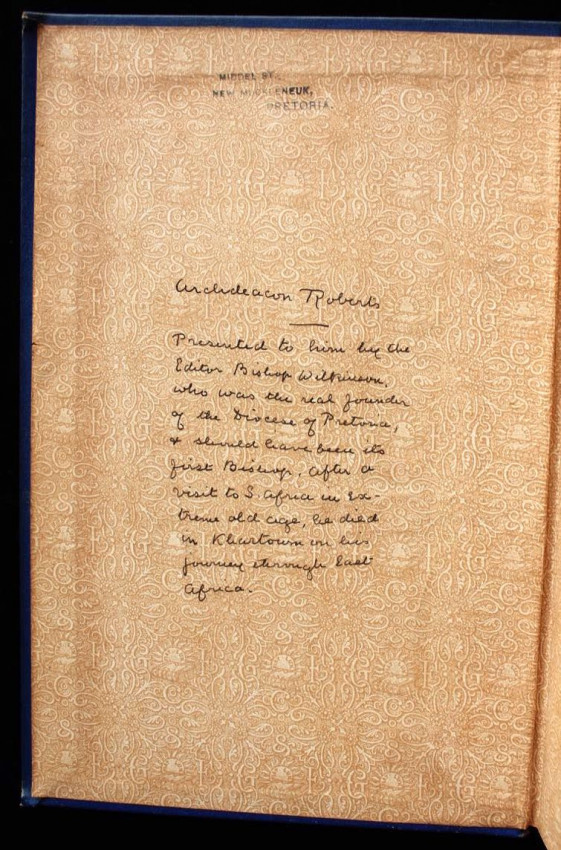 MIDDEL ST.,
NEW MUCKLENEUK,
PRETORIA.
Archdeacon Roberts
Presented to him by the
Editor Bishop Wilkinson,
who was the real founder
of the Diocese of Pretoria,
& should have been its
first Bishop. After a
visit to S. Africa in ex-
treme old age, he died
in Khartoum on his
journey through East
Africa.